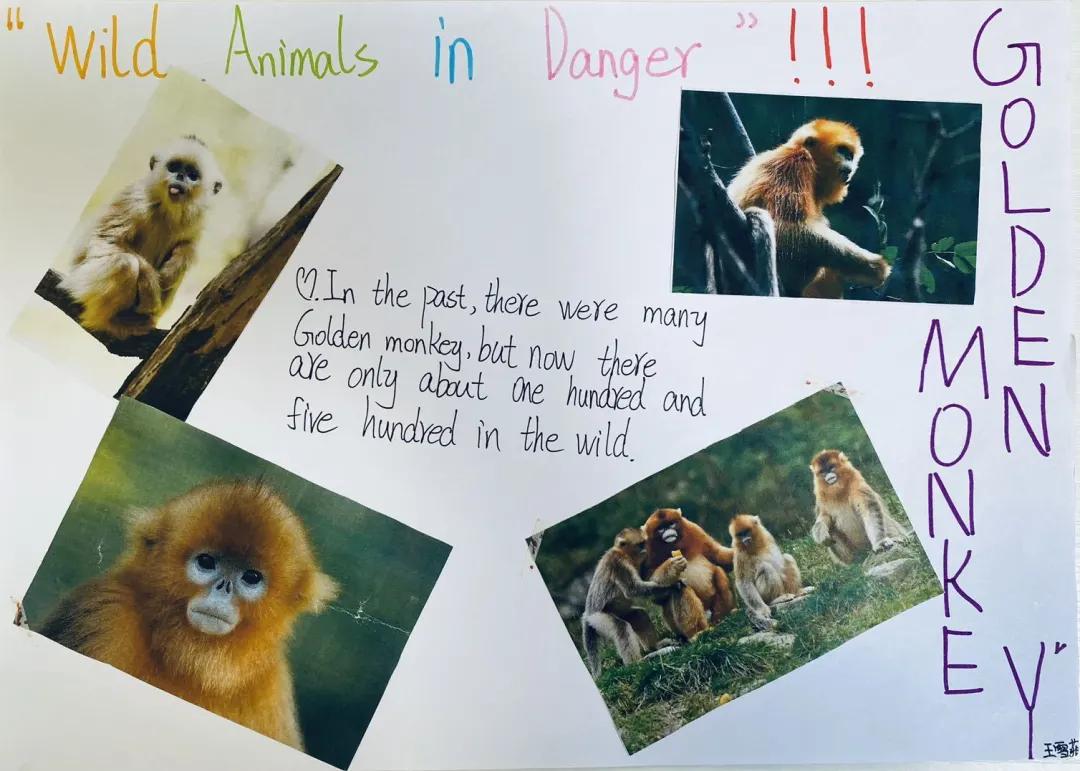 “Wild Animals in Danger”!!!
GOLDEN
MONKEY
♡.In the past, there were many
Golden monkey, but now there
are only about one hundred and
five hundred in the wild.
王雪菲